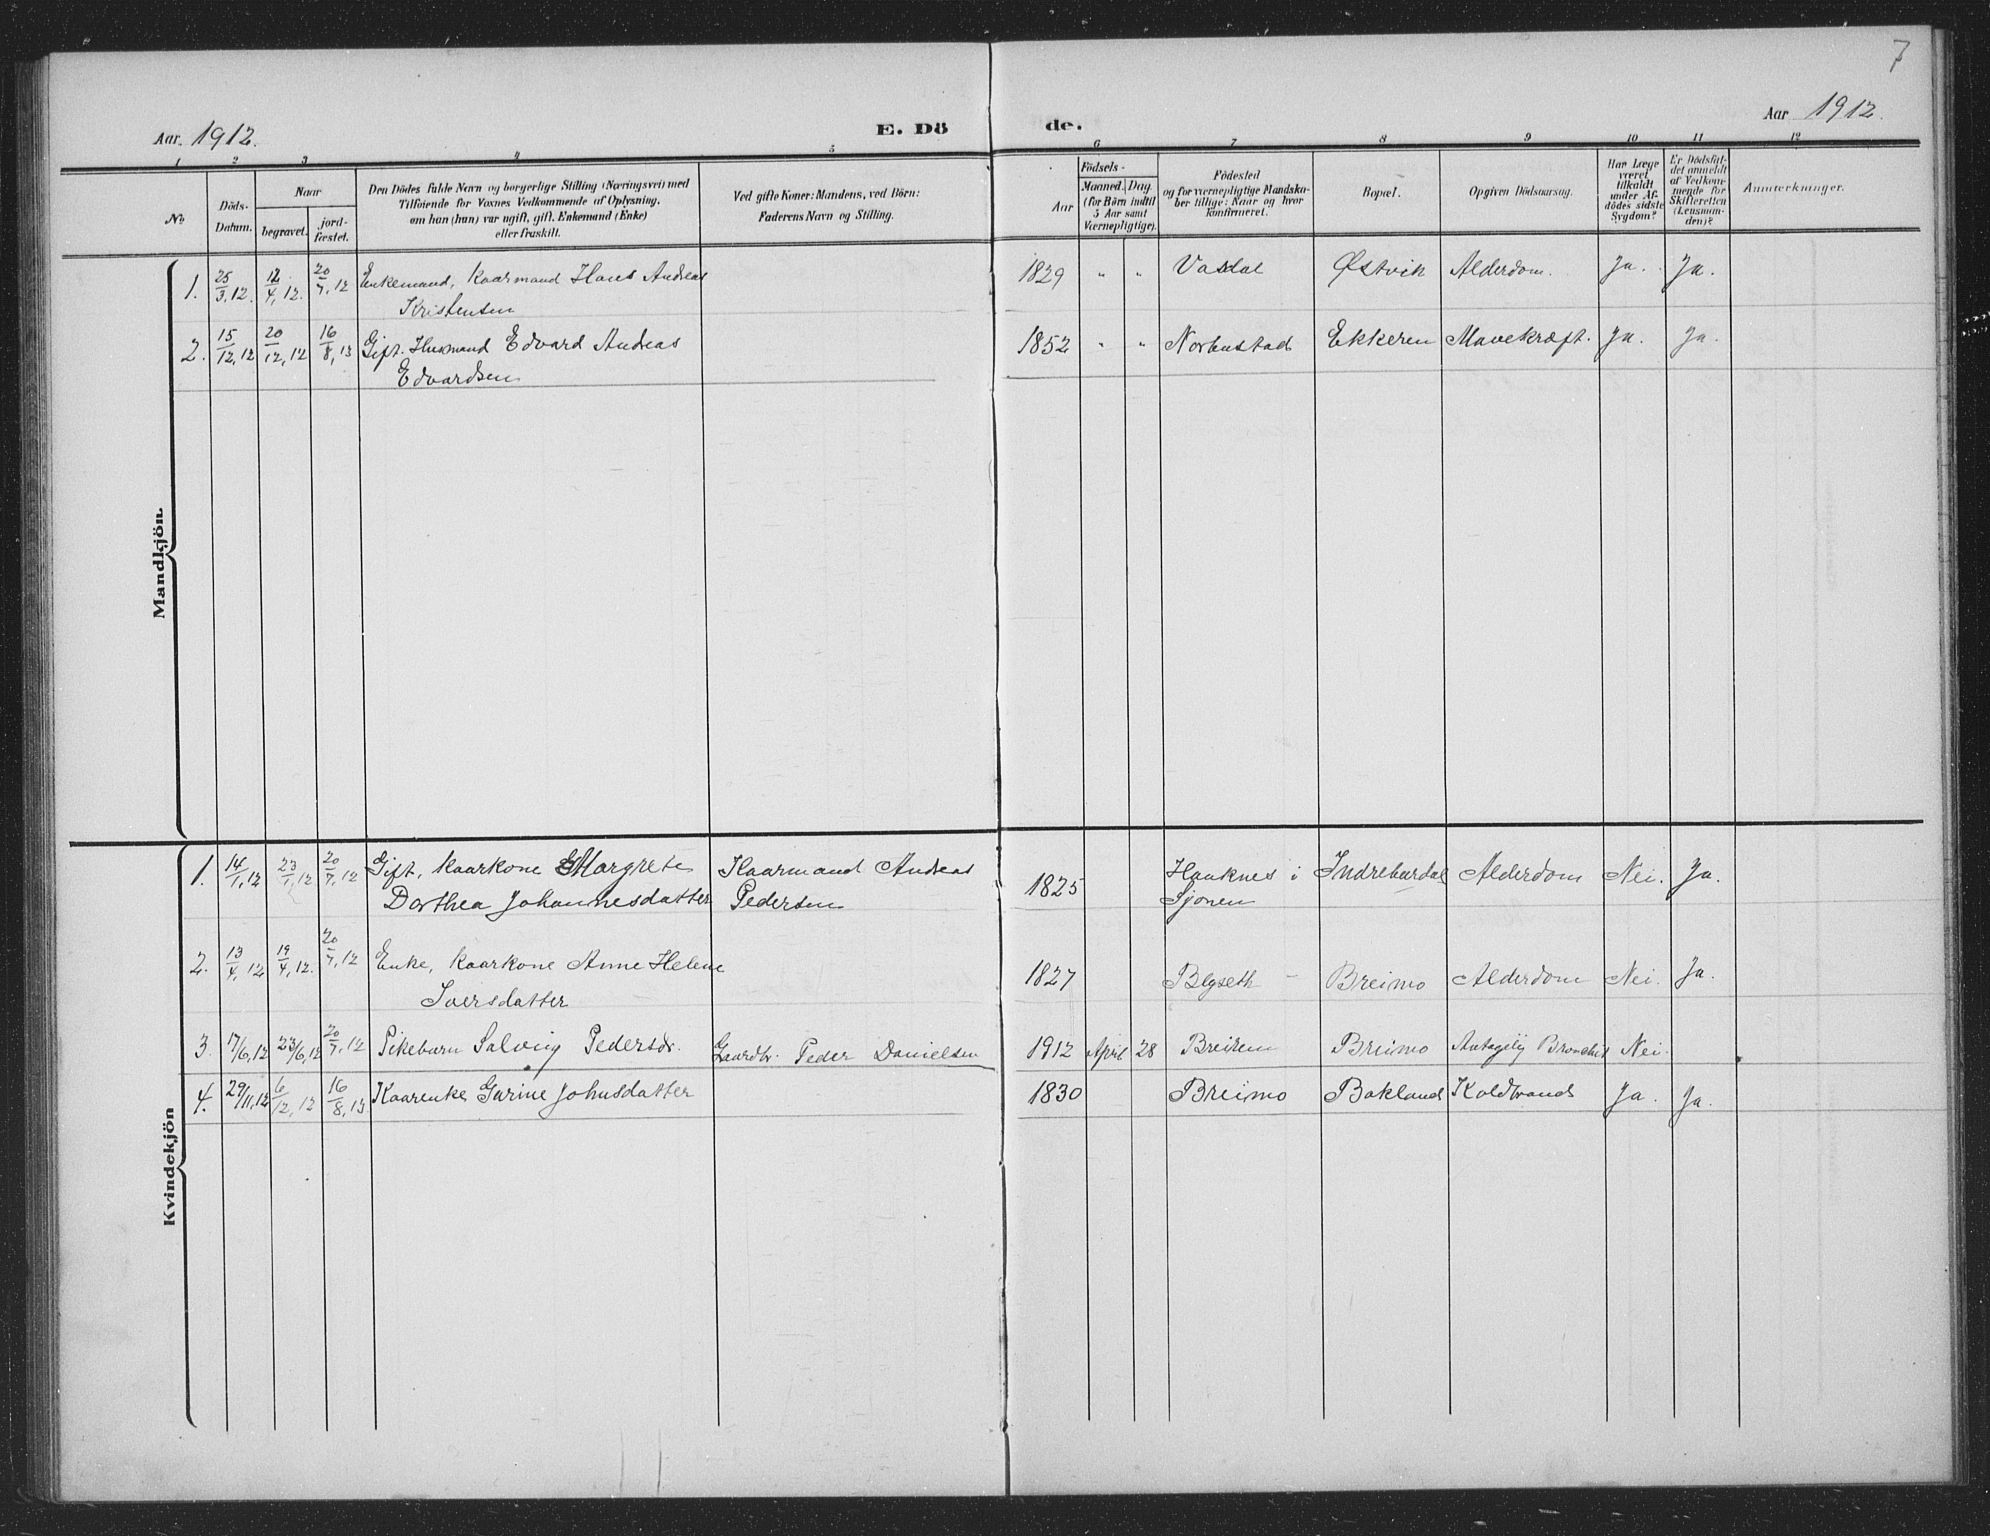 7
Aar 1912.
E. Dö
de.
Aar 1912.
1 2 3 4 5 6 7 8 9 10 11 12
No
Döds-
Datum.
Naar
begravet.
jord-
fæstet.
Den Dödes fulde Navn og borgerlige Stilling (Næringsvei) med
Tilföiende for Voxnes Vedkommende af Oplysning,
om han (hun) var ugift, gift, Enkemand (Enke)
eller fraskilt.
Ved gifte Koner: Mandens, ved Börn:
Faderens Navn og Stilling.
Födsels-
Aar
Maaned. Dag.
(for Börn indtil
5 Aar samt
Værnepligtige).
Födested
og for værnepligtige Mandska-
ber tillige: Naar og hvor
konfirmeret.
Bopæl.
Opgiven Dödsaarsag.
Har Læge
været
tilkaldt
under Af-
dödes sidste
Sygdom?
Er Dödsfal-
det anmeldt
af Vedkom-
mende for
Skifteretten
(Lensman-
den)?
Anmærkninger.
Mandkjön.
1. 25/3, 12. 12/4, 12. 20/7, 12 Enkemand, Kaarmand Hans Andreas 1829 " " Vasdal Østvik Alderdom. Ja. Ja.
Kristensen
2. 15/12, 12 20/12, 12 16/8, 13 Gift. Husmand Edvard Andreas 1852 " " Ekkeren Mavekræft. Ja. Ja.
Edvardsen
Kvindekjön
1. 14/1, 12 23/1, 12 20/7, 12 Gift, Kaarkone Margrete Kaarmand Andreas 1825 Hauknes i Alderdom Nei. Ja.
Dorthea Johannesdatter Pedersen Sjonen
2. 13/4, 12 19/4, 12. 20/7, 12 Enke, Kaarkone Anne Helene 1827 Breimo Alderdom Nei. Ja.
Iversdatter
3. 17/6, 12 23/6, 12 20/7, 12 Pikebarn Solveig Pedersdr. Gaardbr. Peder Danielsen 1912 April 28 Breimo Antagelig Bronchit Nei.
4. 29/11, 12 6/12, 12 16/8, 13 Kaarenke Gurine Johnsdatter 1830 Breimo Bakland Koldbrand Ja. Ja.